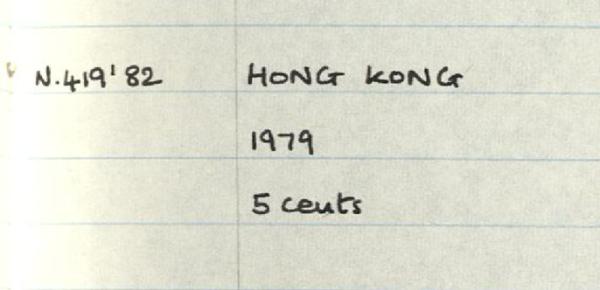 N.419'82 HONG KONG
1979
5 cents